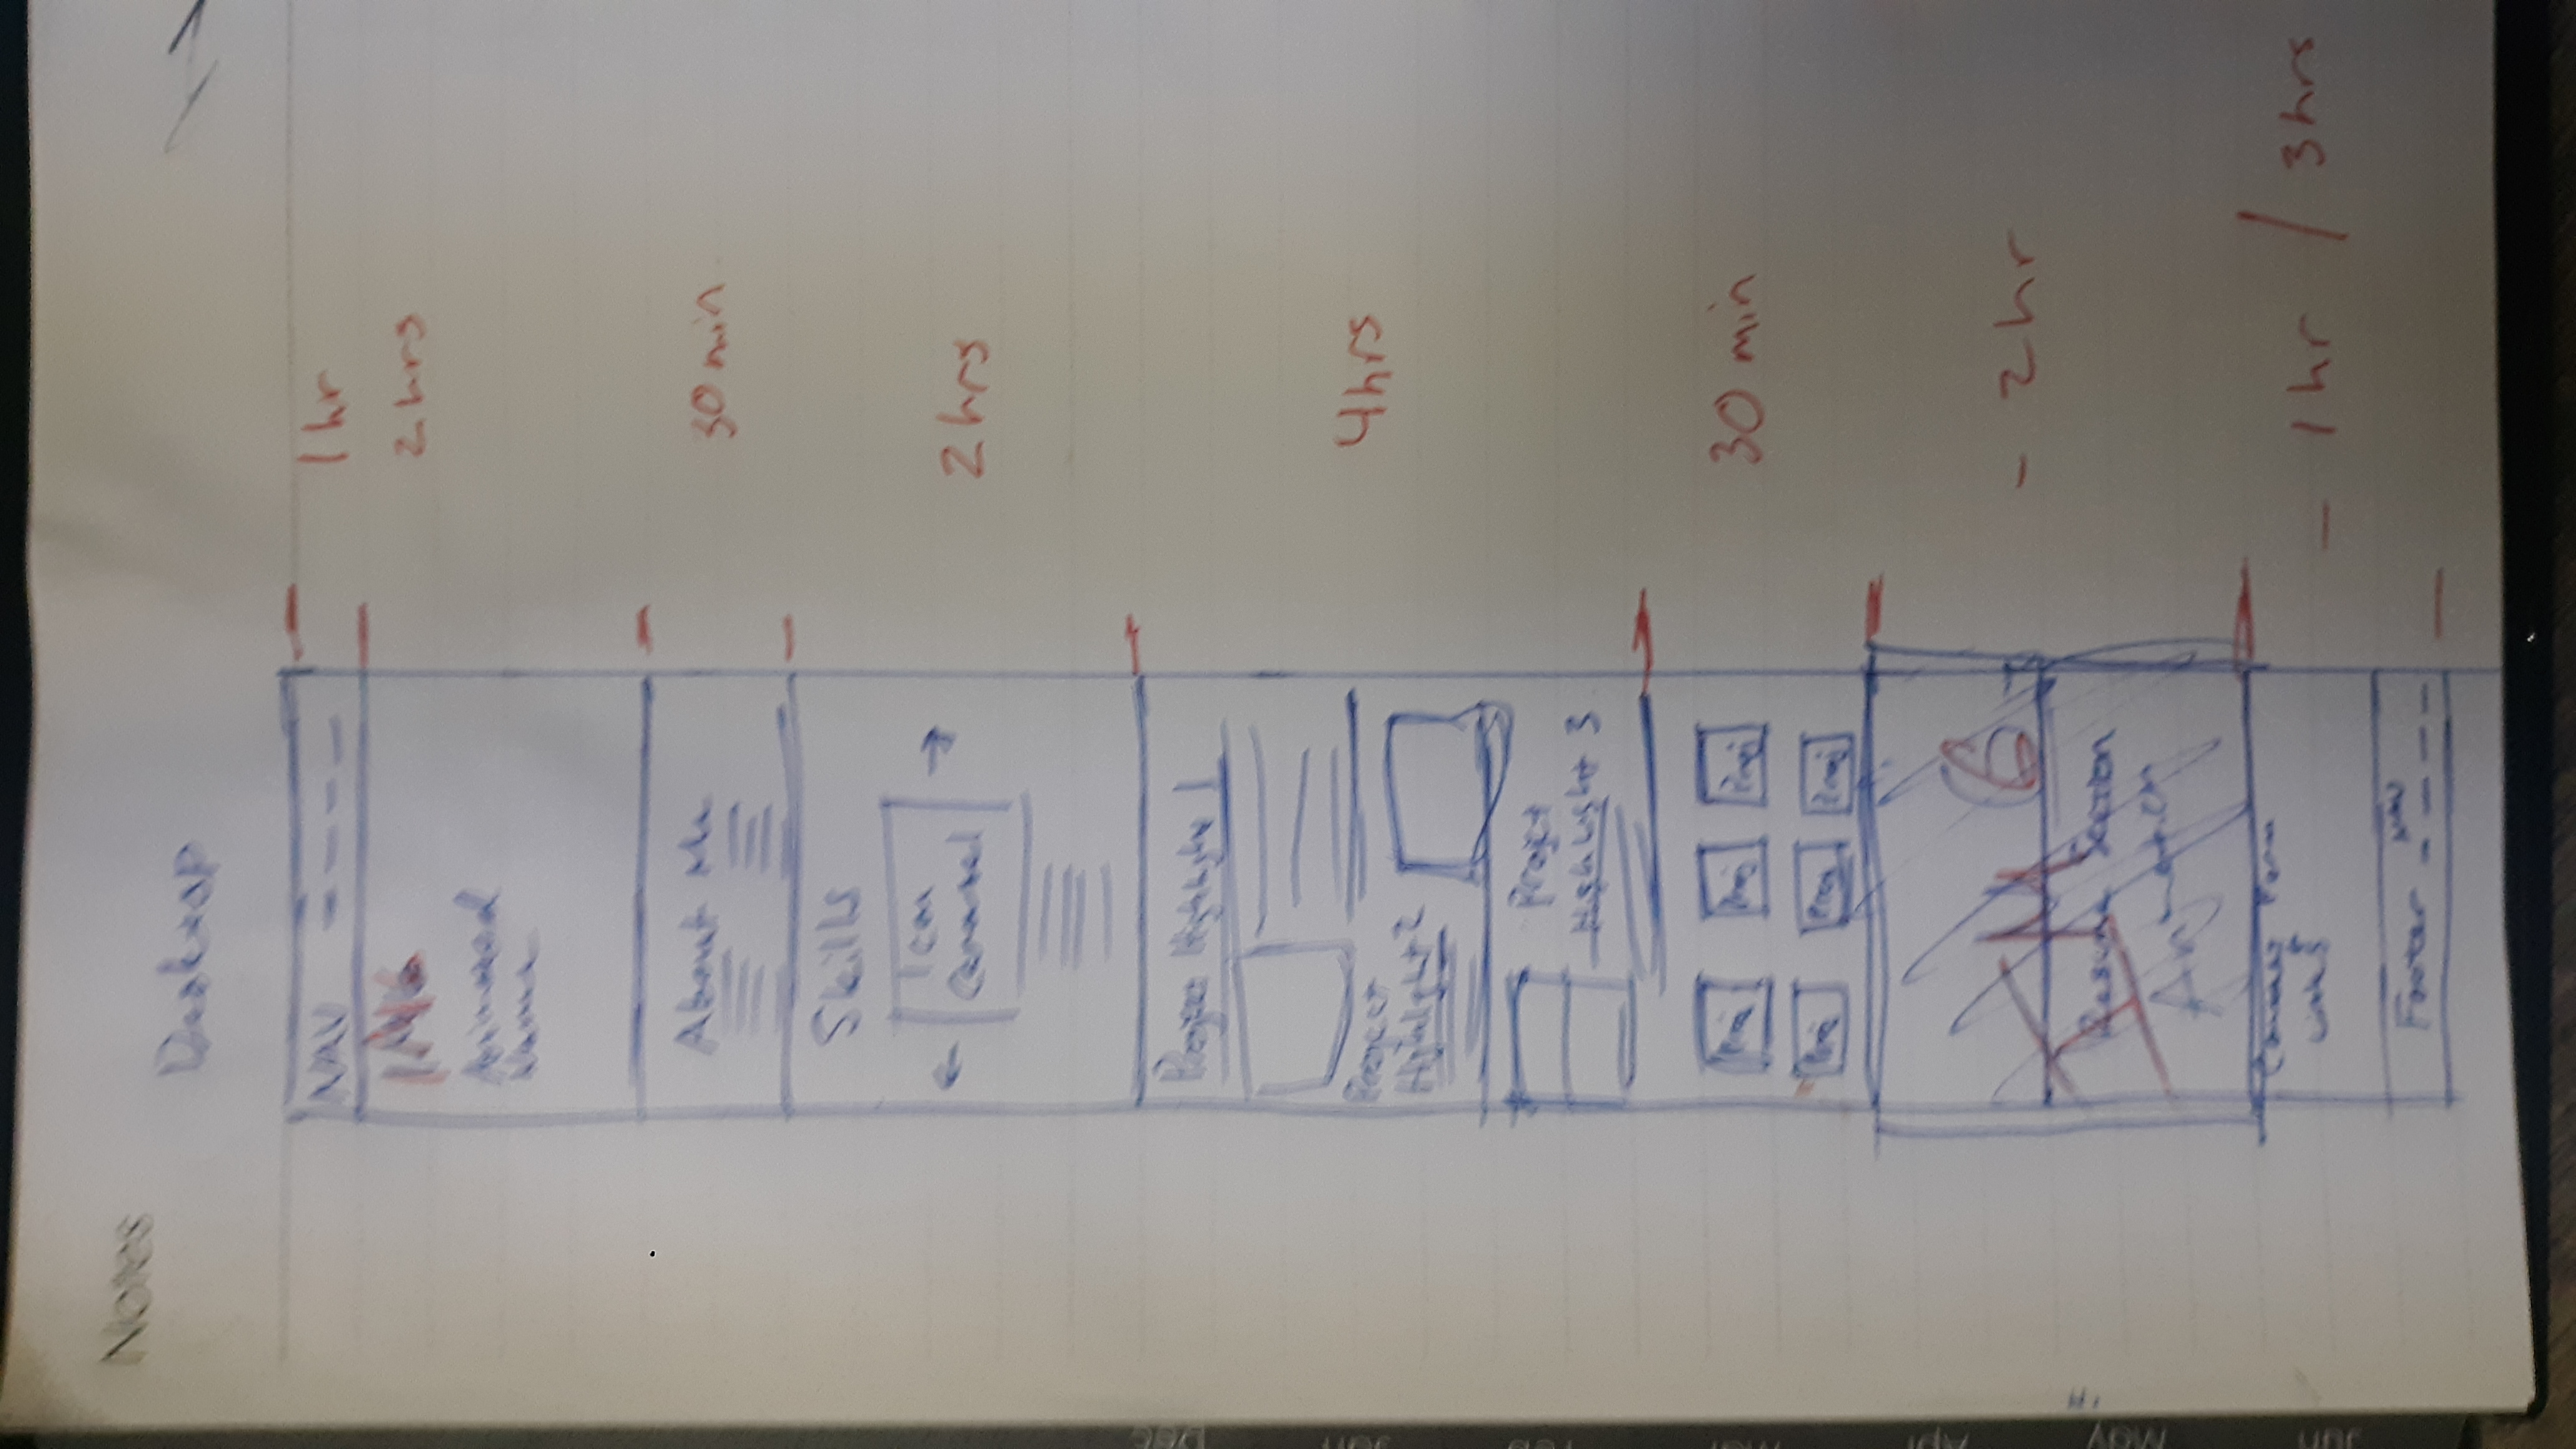 Notes
Desktop
NAV
1 hr
IMG
2 hrs
Animated
Name
About Me
30 min
Skills
Icon
Carousel
2 hrs
Project Highlight 1
4 hrs
Project
Highlight 2
Project
Highlight 3
Proj Proj Proj
30 min
Proj Proj Proj
IMG
- 2 hr
Resume Section
Animation
Contact Form
Links
- 1 hr / 3 hrs
NAV
Footer
Dec
Jan
Feb
Mar
Apr
May
Jun